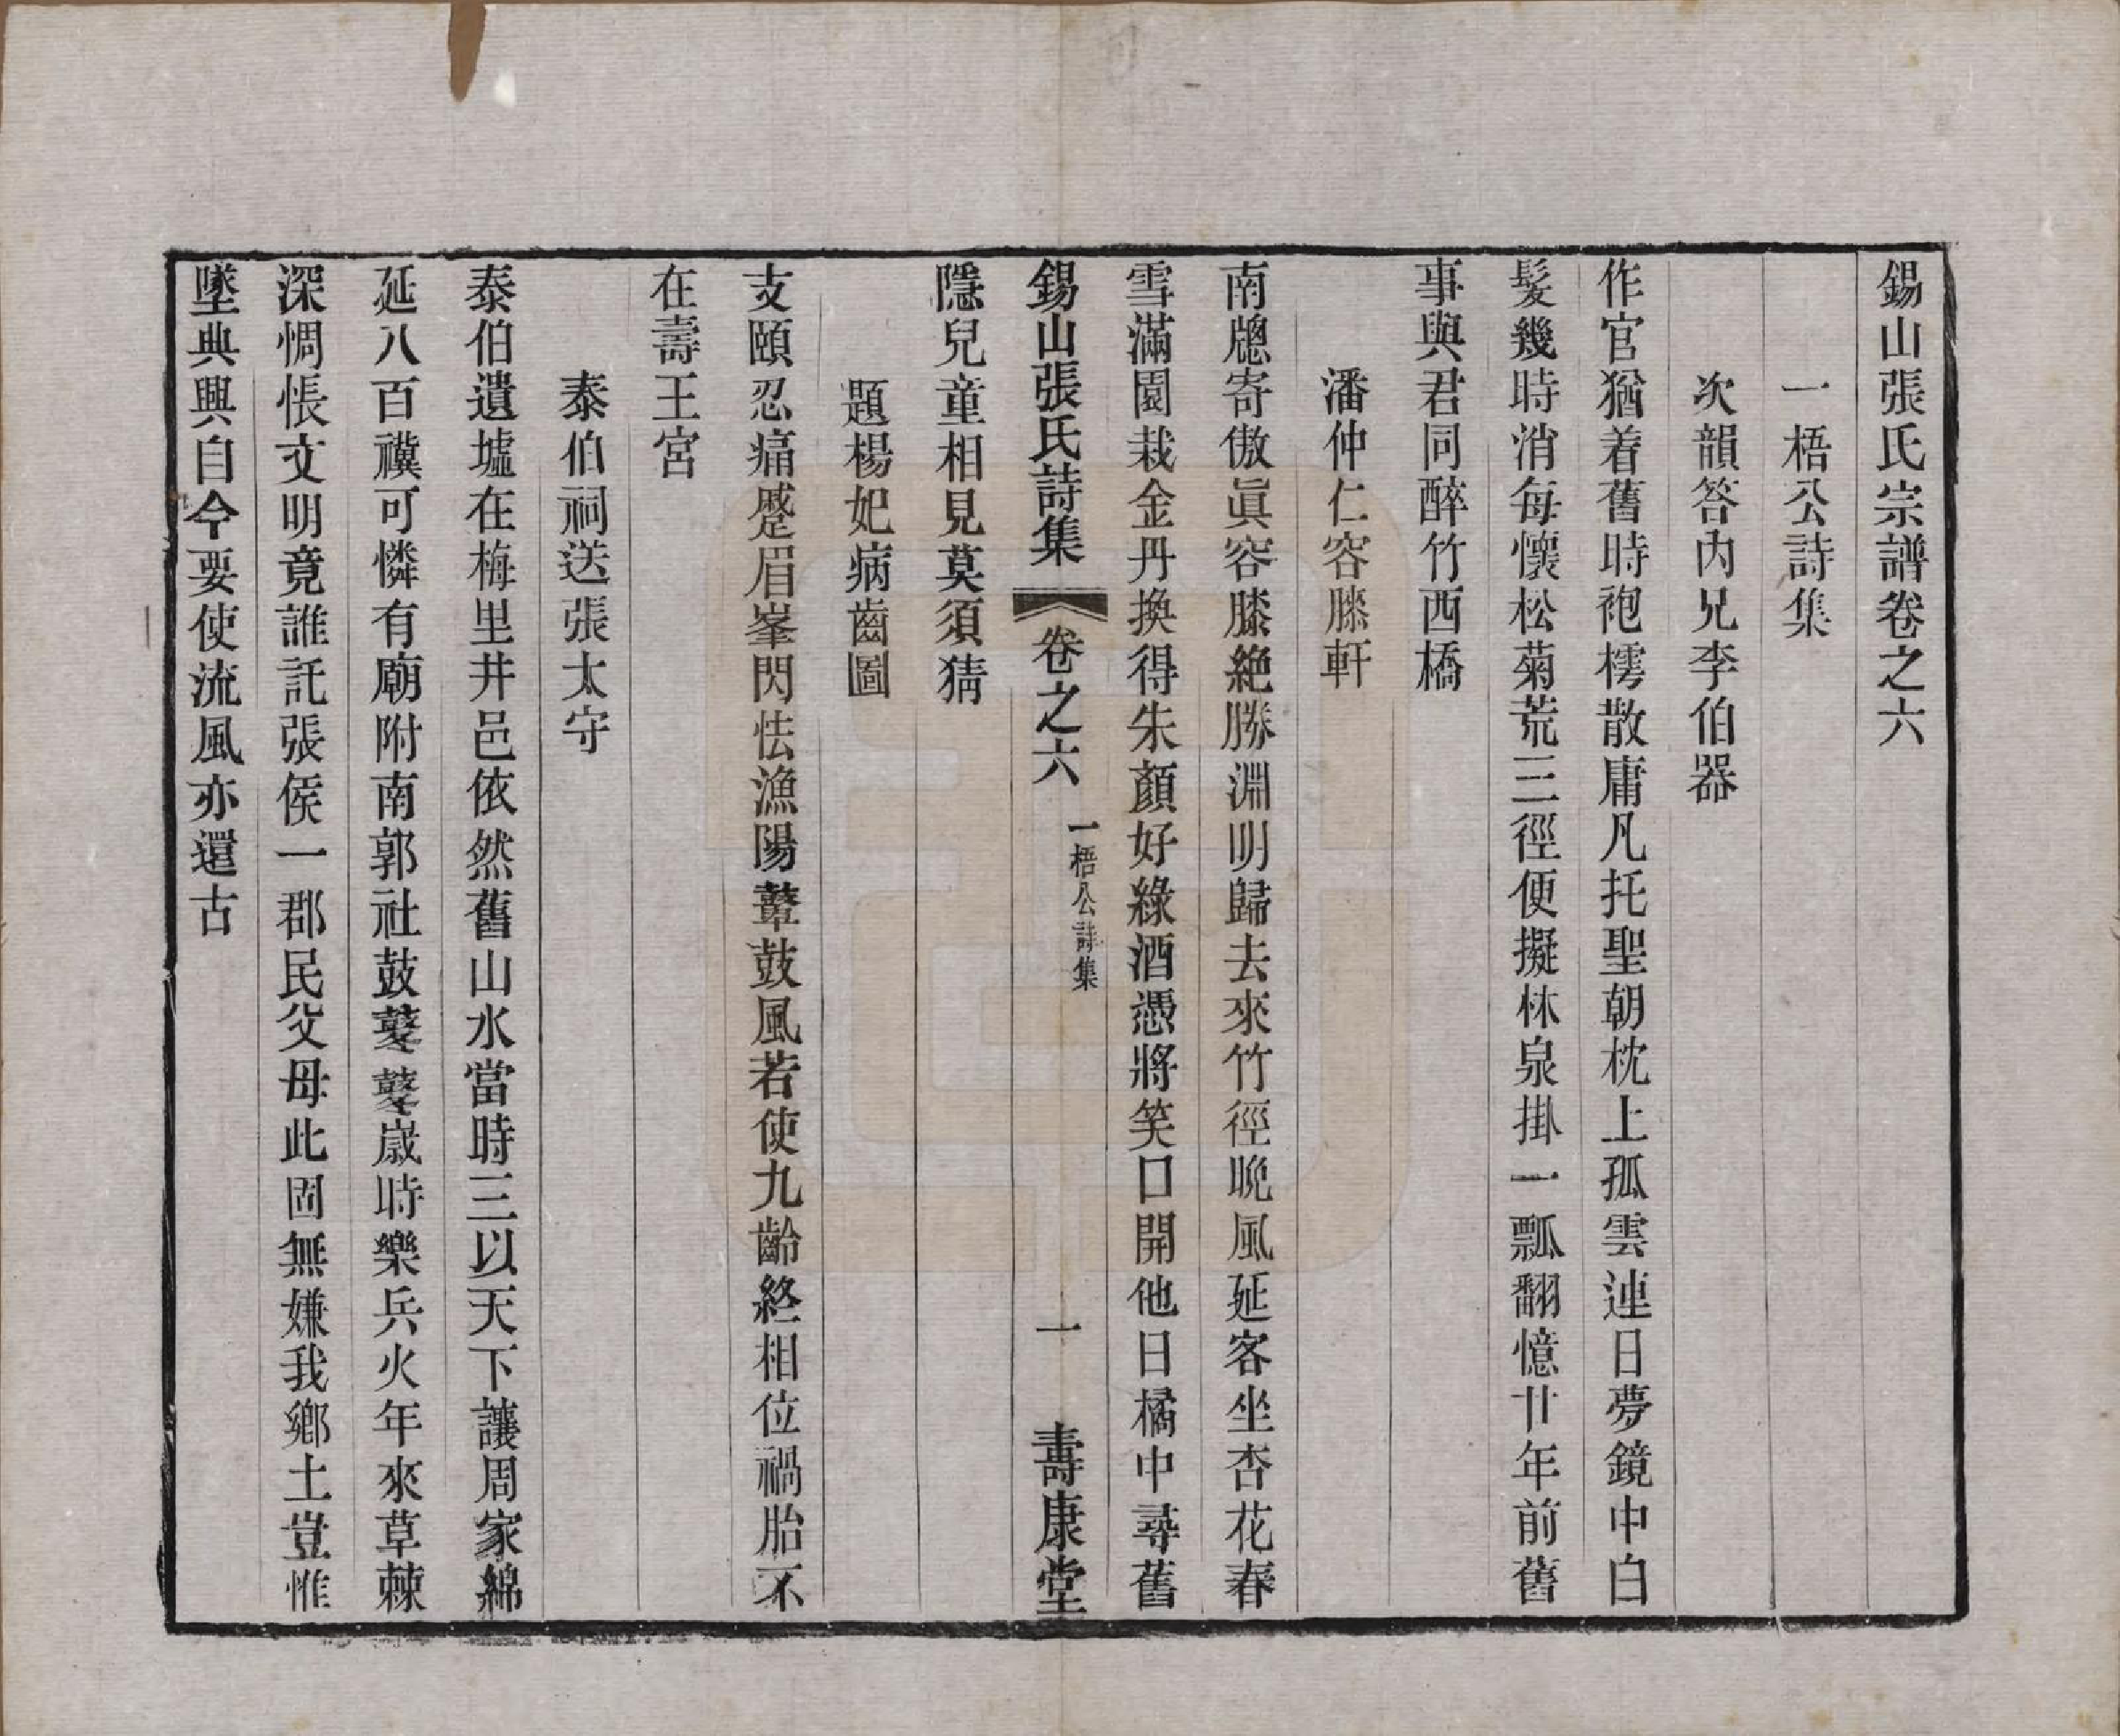 錫山張氏宗譜卷之六
一梧公詩集
次韻答內兄李伯器
作官猶着舊時袍樗散庸凡托聖朝枕上孤雲連日夢鏡中白
髮幾時消每懷松菊荒三徑便擬林泉掛一瓢翻憶廿年前舊
事與君同醉竹西橋
潘仲仁容膝軒
南牕寄傲眞容膝絶勝淵明歸去來竹徑晩風延客坐杏花春
雪滿園栽金丹換得朱顏好綠酒憑將笑口開他日橘中尋舊
錫山張氏詩集
卷之六
一梧公詩集
一
壽康堂
隱兒童相見莫須猜
題楊妃病齒圖
支頤忍痛蹙眉峯閃怯漁陽鼙鼓風若使九齡終相位禍胎不
在壽王宮
泰伯祠送張太守
泰伯遺墟在梅里井邑依然舊山水當時三以天下讓周家綿
延八百禩可憐有廟附南郭社鼓鼕鼕嵗時樂兵火年來草棘
深惆悵文明竟誰託張侯一郡民父母此固無嫌我鄉土豈惟
墜典興自今要使流風亦還古